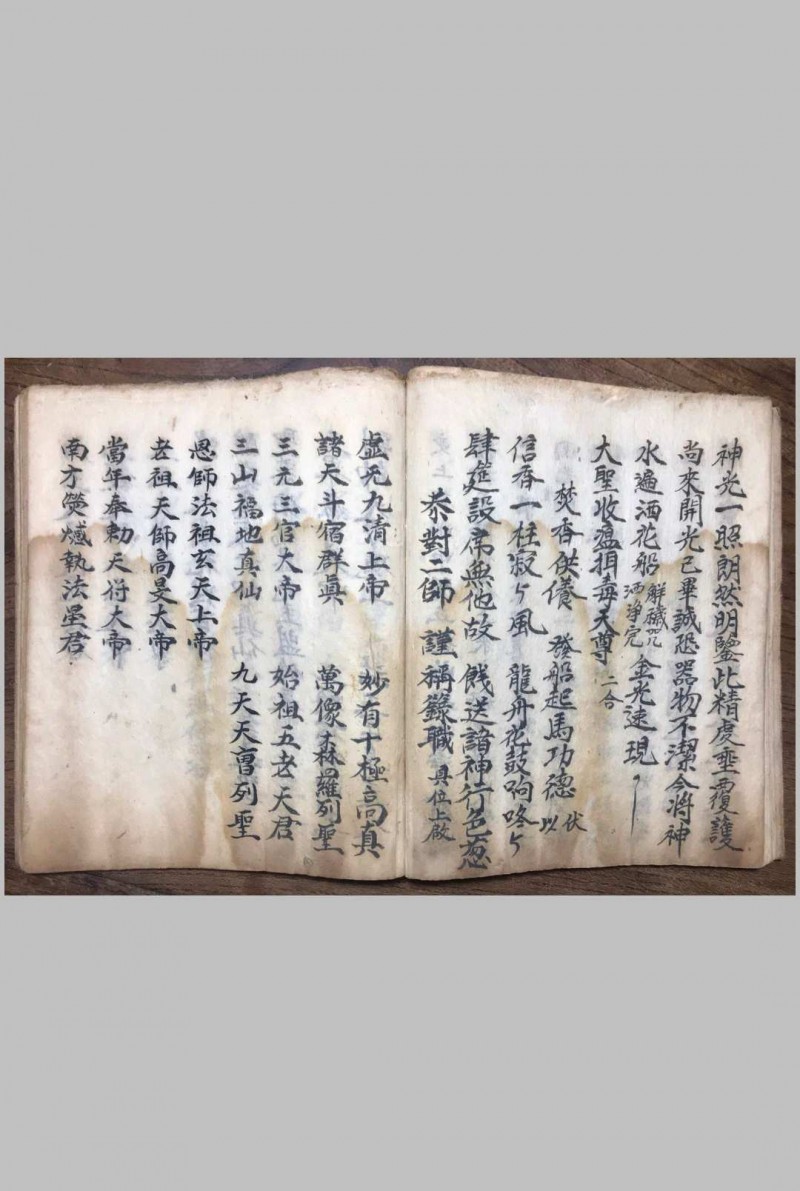 神光一照朗然明鑒此精虔垂覆護
尚來開光已畢誠恐器物不潔今將神
水遍洒花船 解穢咒 洒淨完 金光速現
大聖收瘟捐毒天尊 二合
焚香供養 發船起馬功德 伏以
信香一炷寂々風 龍舟花鼓响咚々
肆筵設席無他故 餞送諸神行色怱
恭對二師 謹稱籙職 具位上啟
虛无九清上帝 妙有十極高真
諸天斗宿群真 萬像森羅列聖
三元三官大帝 始祖五老天君
三山福地真仙 九天天曹列聖
恩師法祖玄天上帝
老祖天師高旻大帝
當年奉勅天符大帝
南方熒惑執法星君